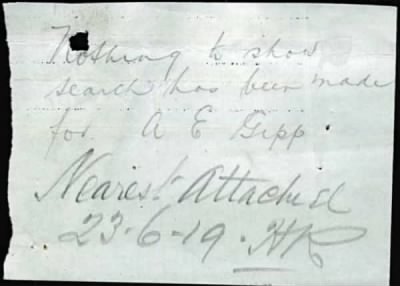 Nothing to show
search has been made
for A E Gipp.
Nearest Attached
23-6-19. HR